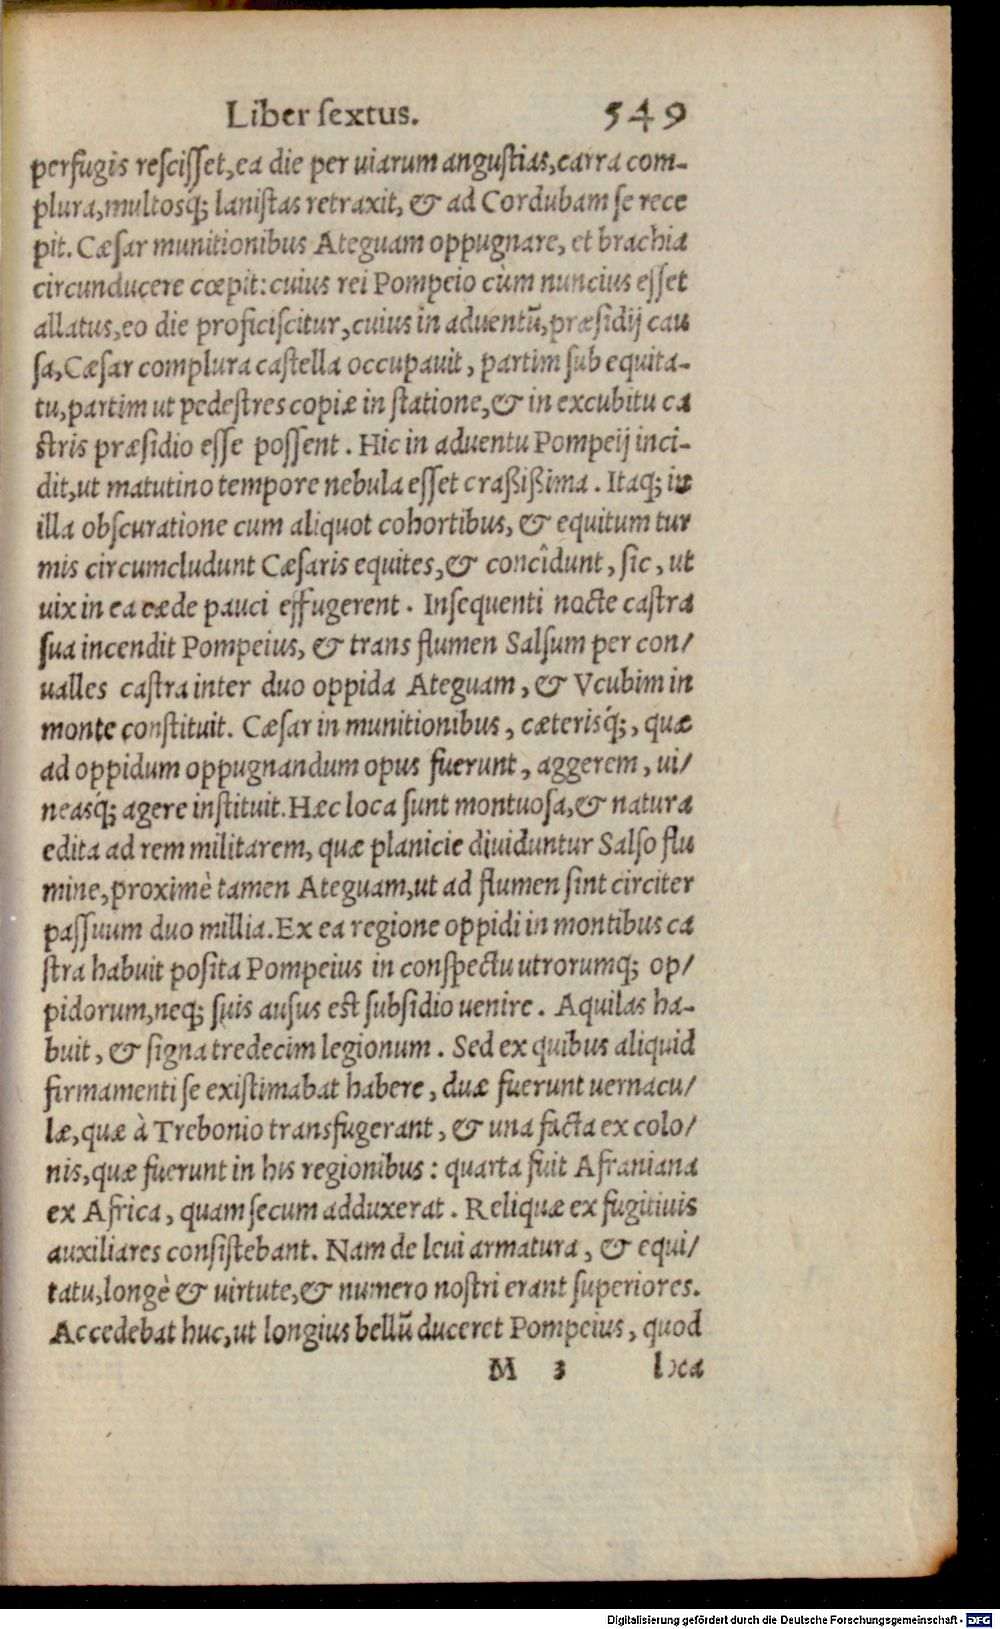 Liber ſextus. 549
perfugis reſciſſet, ea die per uiarum anguſtias, carra com-
plura, multosq́; laniſtas retraxit, & ad Cordubam ſe rece
pit. Cæſar munitionibus Ateguam oppugnare, et brachia
circunducere cœpit: cuius rei Pompeio cùm nuncius eſſet
allatus, eo die proficiſcitur, cuius in aduentũ, præſidij cau
ſa, Cæſar complura caſtella occupauit, partim ſub equita-
tu, partim ut pedeſtres copiæ in ſtatione, & in excubitu ca
ſtris præſidio eſſe poſſent. Hic in aduentu Pompeij inci-
dit, ut matutino tempore nebula eſſet craßißima. Itaq; in
illa obſcuratione cum aliquot cohortibus, & equitum tur
mis circumcludunt Cæſaris equites, & concîdunt, ſic, ut
uix in ea cæde pauci effugerent. Inſequenti nocte caſtra
ſua incendit Pompeius, & trans flumen Salſum per con/
ualles caſtra inter duo oppida Ateguam, & Vcubim in
monte conſtituit. Cæſar in munitionibus, cæterisq́;, quæ
ad oppidum oppugnandum opus fuerunt, aggerem, ui/
neasq́; agere inſtituit. Hæc loca ſunt montuoſa, & natura
edita ad rem militarem, quæ planicie diuiduntur Salſo flu
mine, proximè tamen Ateguam, ut ad flumen ſint circiter
paſſuum duo millia. Ex ea regione oppidi in montibus ca
ſtra habuit poſita Pompeius in conſpectu utrorumq; op/
pidorum, neq; ſuis auſus eſt ſubſidio uenire. Aquilas ha-
buit, & ſigna tredecim legionum. Sed ex quibus aliquid
firmamenti ſe exiſtimabat habere, duæ fuerunt uernacu/
læ, quæ à Trebonio transfugerant, & una facta ex colo/
nis, quæ fuerunt in his regionibus: quarta fuit Afraniana
ex Africa, quam ſecum adduxerat. Reliquæ ex fugitiuis
auxiliares conſiſtebant. Nam de leui armatura, & equi/
tatu, longè & uirtute, & numero noſtri erant ſuperiores.
Accedebat huc, ut longius bellũ duceret Pompeius, quod
M 3 loca
Digitalisierung gefördert durch die Deutsche Forschungsgemeinschaft - DFG